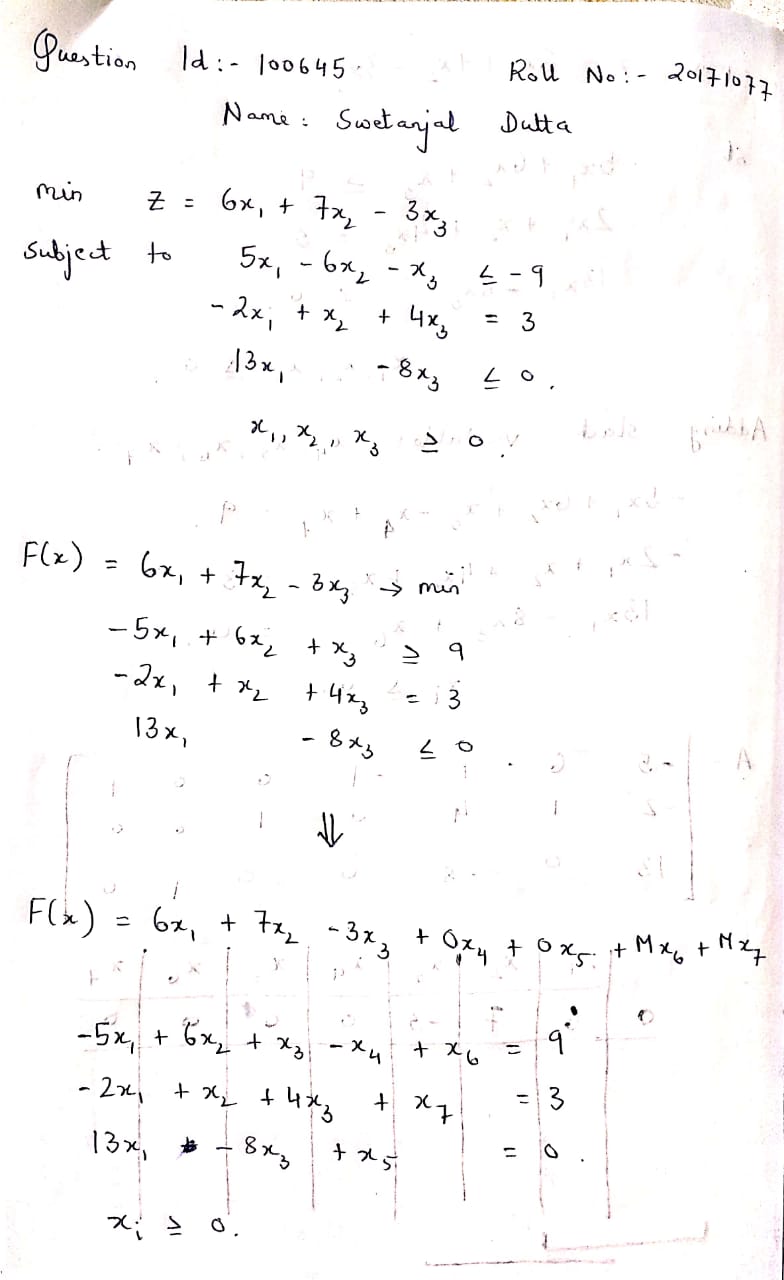 Question Id :- 100645. Roll No :- 20171077
Name : Swetanjal Dutta
min Z = 6x₁ + 7x₂ - 3x₃
subject to 5x₁ - 6x₂ - x₃ ≤ -9
-2x₁ + x₂ + 4x₃ = 3
13x₁ - 8x₃ ≤ 0.
x₁, x₂, x₃ ≥ 0.
F(x) = 6x₁ + 7x₂ - 3x₃ → min
-5x₁ + 6x₂ + x₃ ≥ 9
-2x₁ + x₂ + 4x₃ = 3
13x₁ - 8x₃ ≤ 0.
⇓
F(x) = 6x₁ + 7x₂ - 3x₃ + 0x₄ + 0x₅ + Mx₆ + Mx₇
-5x₁ + 6x₂ + x₃ - x₄ + x₆ = 9
-2x₁ + x₂ + 4x₃ + x₇ = 3
13x₁ - 8x₃ + x₅ = 0.
xᵢ ≥ 0.